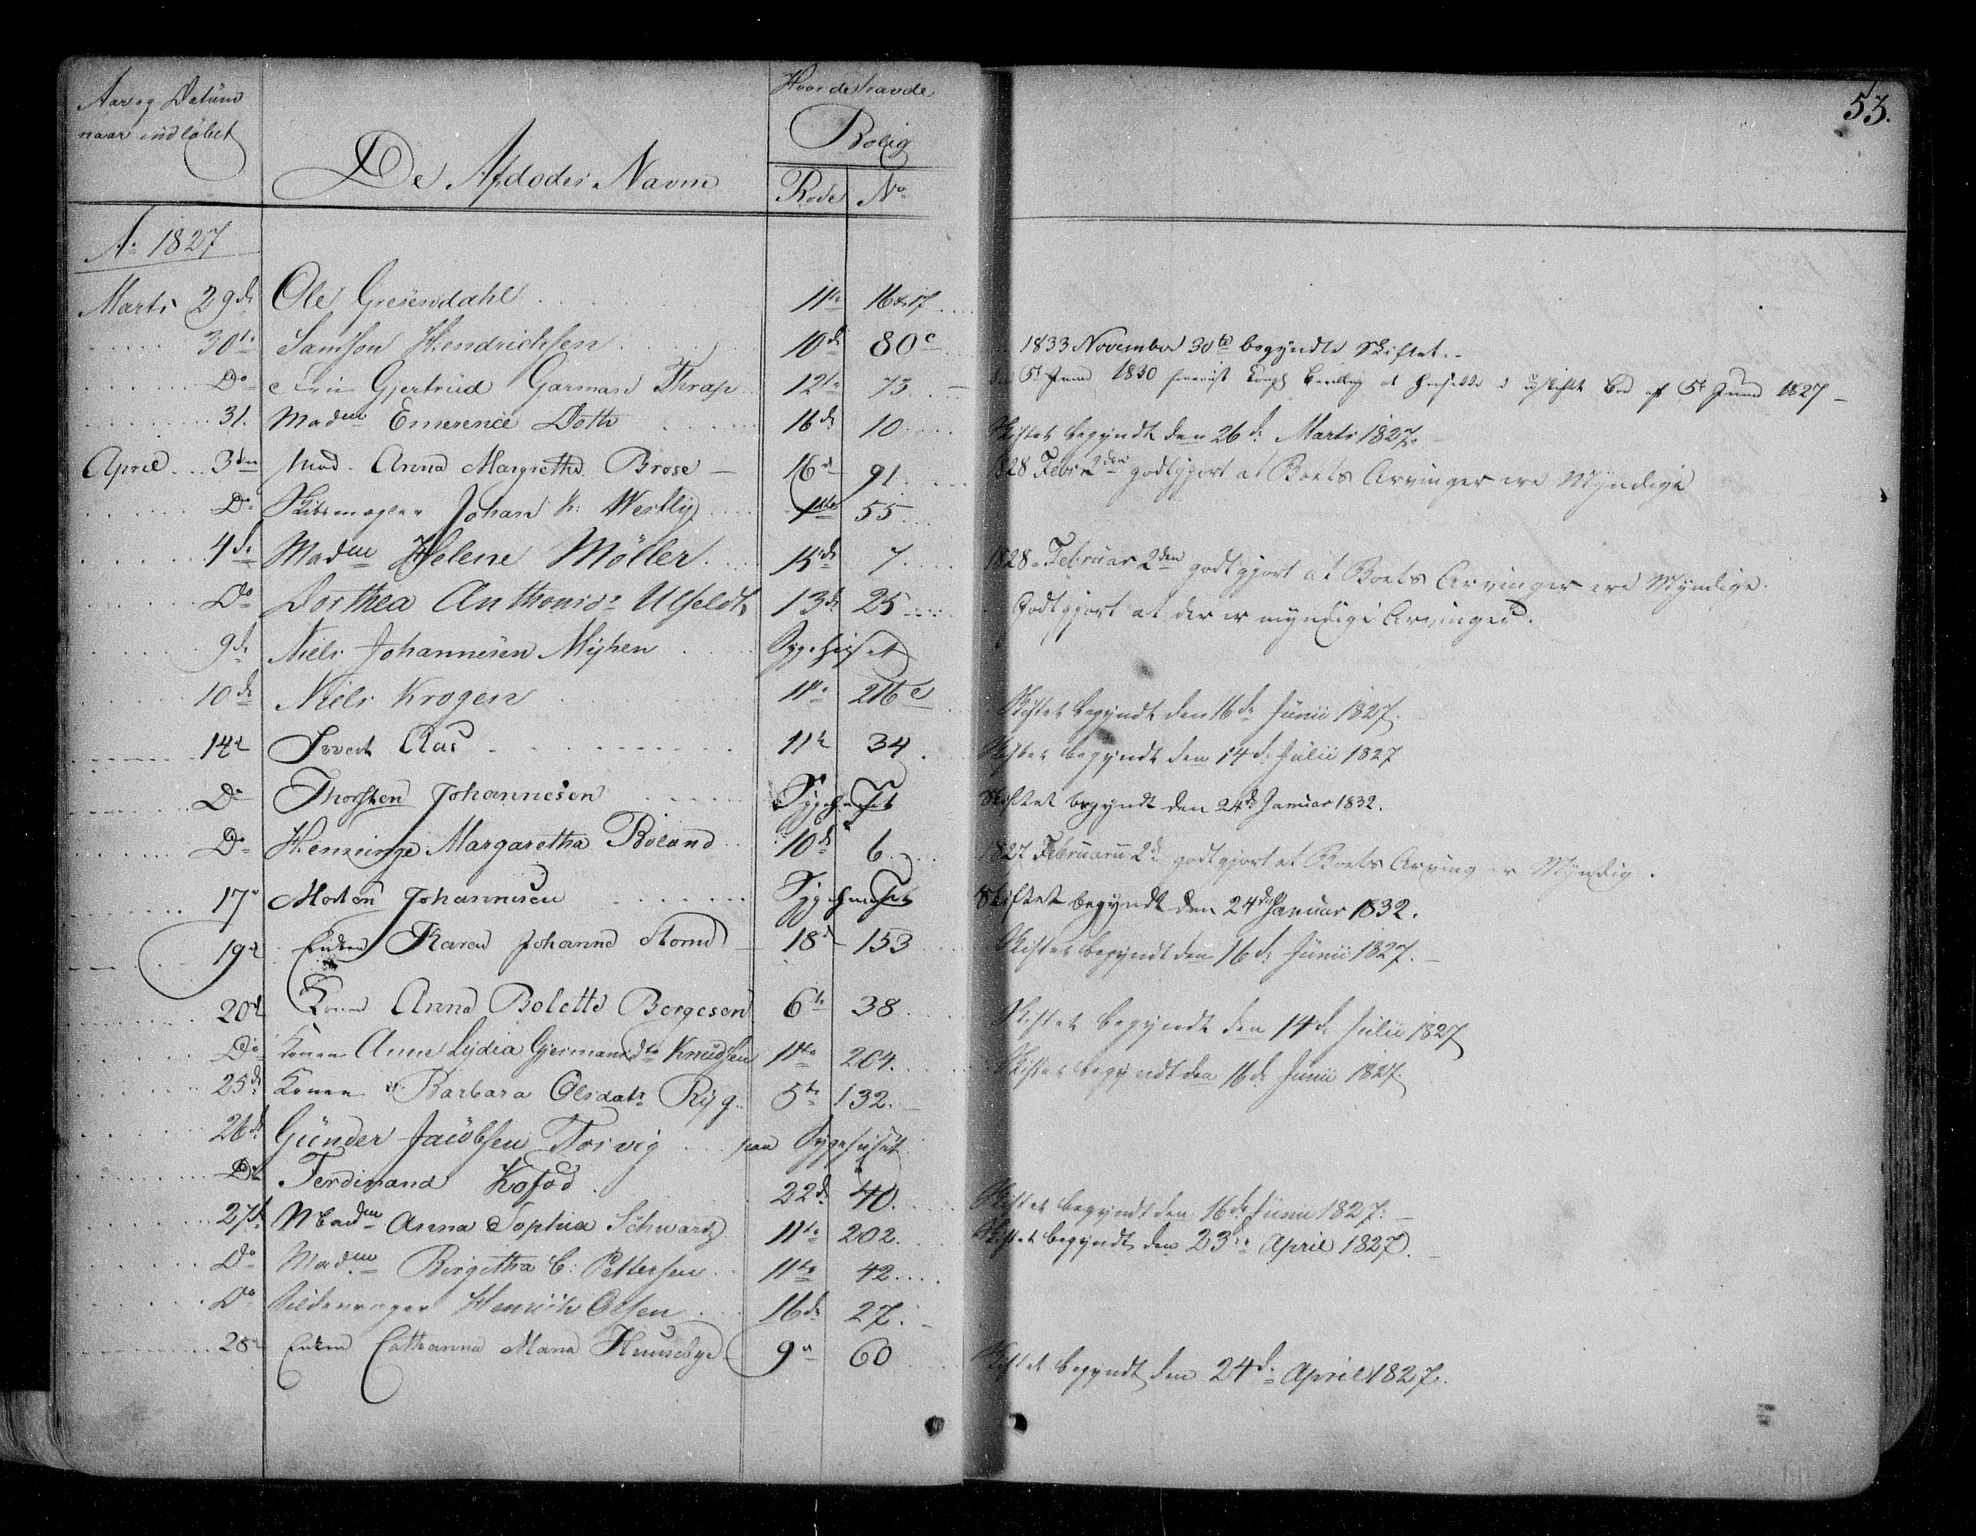 53.
Aar og Datum
naar indløbet
De Afdødes Navne
Hvor de havde
Bolig
Rode No
Ao 1827
Marts 29de Ole Greisendahl 11te 16 & 17
30te Samson Hendrichsen 10de 80c 1833 November 30te begyndte Skiftet.
Do Gjertrud Garmann Thrap 12te 73 5te Juni 1830 5te Juni 1827
31. Madme Emerence Doth 16de 10 Skiftet begyndt den 26de Marts 1827.
April 3die Mad. Anna Margrethe Brose 16d 91 1828 Febr 2den godtgjort at Boets Arvinger ere Myndige
Do Skibsmægler Johan Westly 55
4de Madme Helene Möller 15de 7 1828 Februar 2den godtgjort at Boets Arvinger ere Myndige.
Do Dorthea Anthonisdr Ulfeldt 13de 25 Godtgjort at der er myndige Arvinger.
9de Niels Johannesen Myhen Sygehuset
10de Niels Krogen 11te 216c Skiftet begyndt den 16de Junii 1827.
14de Sivert Aas 11te 34 Skiftet begyndt den 14de Julii 1827
Do Thorsten Johannesen Sygehuset Skiftet begyndt den 24de Januar 1832.
Do Henninge Margaretha Boland 10de 6 1827 Februarii 2de godtgjort at Boets Arving er Myndig.
17de Morten Johannesen Sygehuset Skiftet begyndt den 24de Januar 1832.
19de Enken Karen Johanne Storm 18de 153 Skiftet begyndt den 16de Junii 1827.
20de Konen Anna Bolette Borgesen 6te 38 Skiftet begyndt den 14de Julii 1827
Do Konen Anne Lydia Gjermandsdtr Knudsen 11te 204. Skiftet begyndt den 16de Junii 1827.
25de Konen Barbara Olsdatr Ryg 5te 132.
26de Günder Jacobsen Torvig paa Sygehuset
Do Ferdinand Kofod 22de 40. Skiftet begyndt den 16de Junii 1827.
27de Madme Anna Sophia Schwartz 11te 202. Skiftet begyndt den 23de April 1827.
Do Madme Birgitha C: Pettersen 11te 42
Do Sildevrager Henrich Olsen 16de 27.
28de Enken Catharina Maria Huusebye 9de 60 Skiftet begyndt den 24de April 1827.